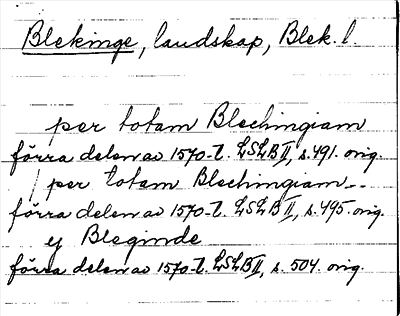 Blekinge, landskap, Blek. l.
per totam Blechingiam
förra delen av 1570-t. LSLB II, s. 491. orig.
per totam Blechingiam--
förra delen av 1570-t. LSLB II, s. 495. orig.
ej Bleginde
förra delen av 1570-t. LSLB II, s. 504. orig.